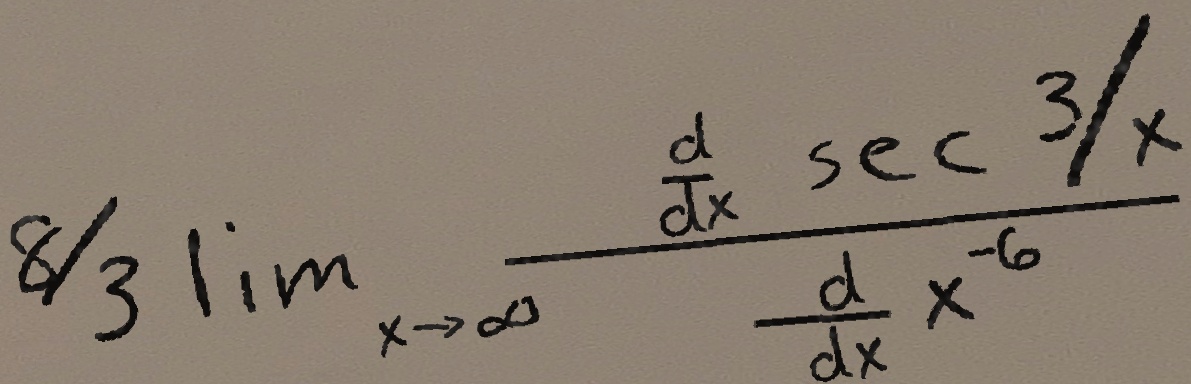 8/3 lim_{x→∞} \frac{\frac{d}{dx} sec 3/x}{\frac{d}{dx} x^{-6}}